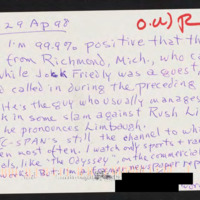 29 Apr 98 O.W) R
I'm 99.9% positive that th
from Richmond, Mich., who ca
while Jack Friedly was a guest
o called in during the preceding
He's the guy who usually manages
k in some slam against Rush Li
he pronounces Limbough.
C-SPAN's still the channel to whi
en most often. I watch only sports & n
ls, like "the Odyssey", on the commercial
works. But I'm a former newspaper rep